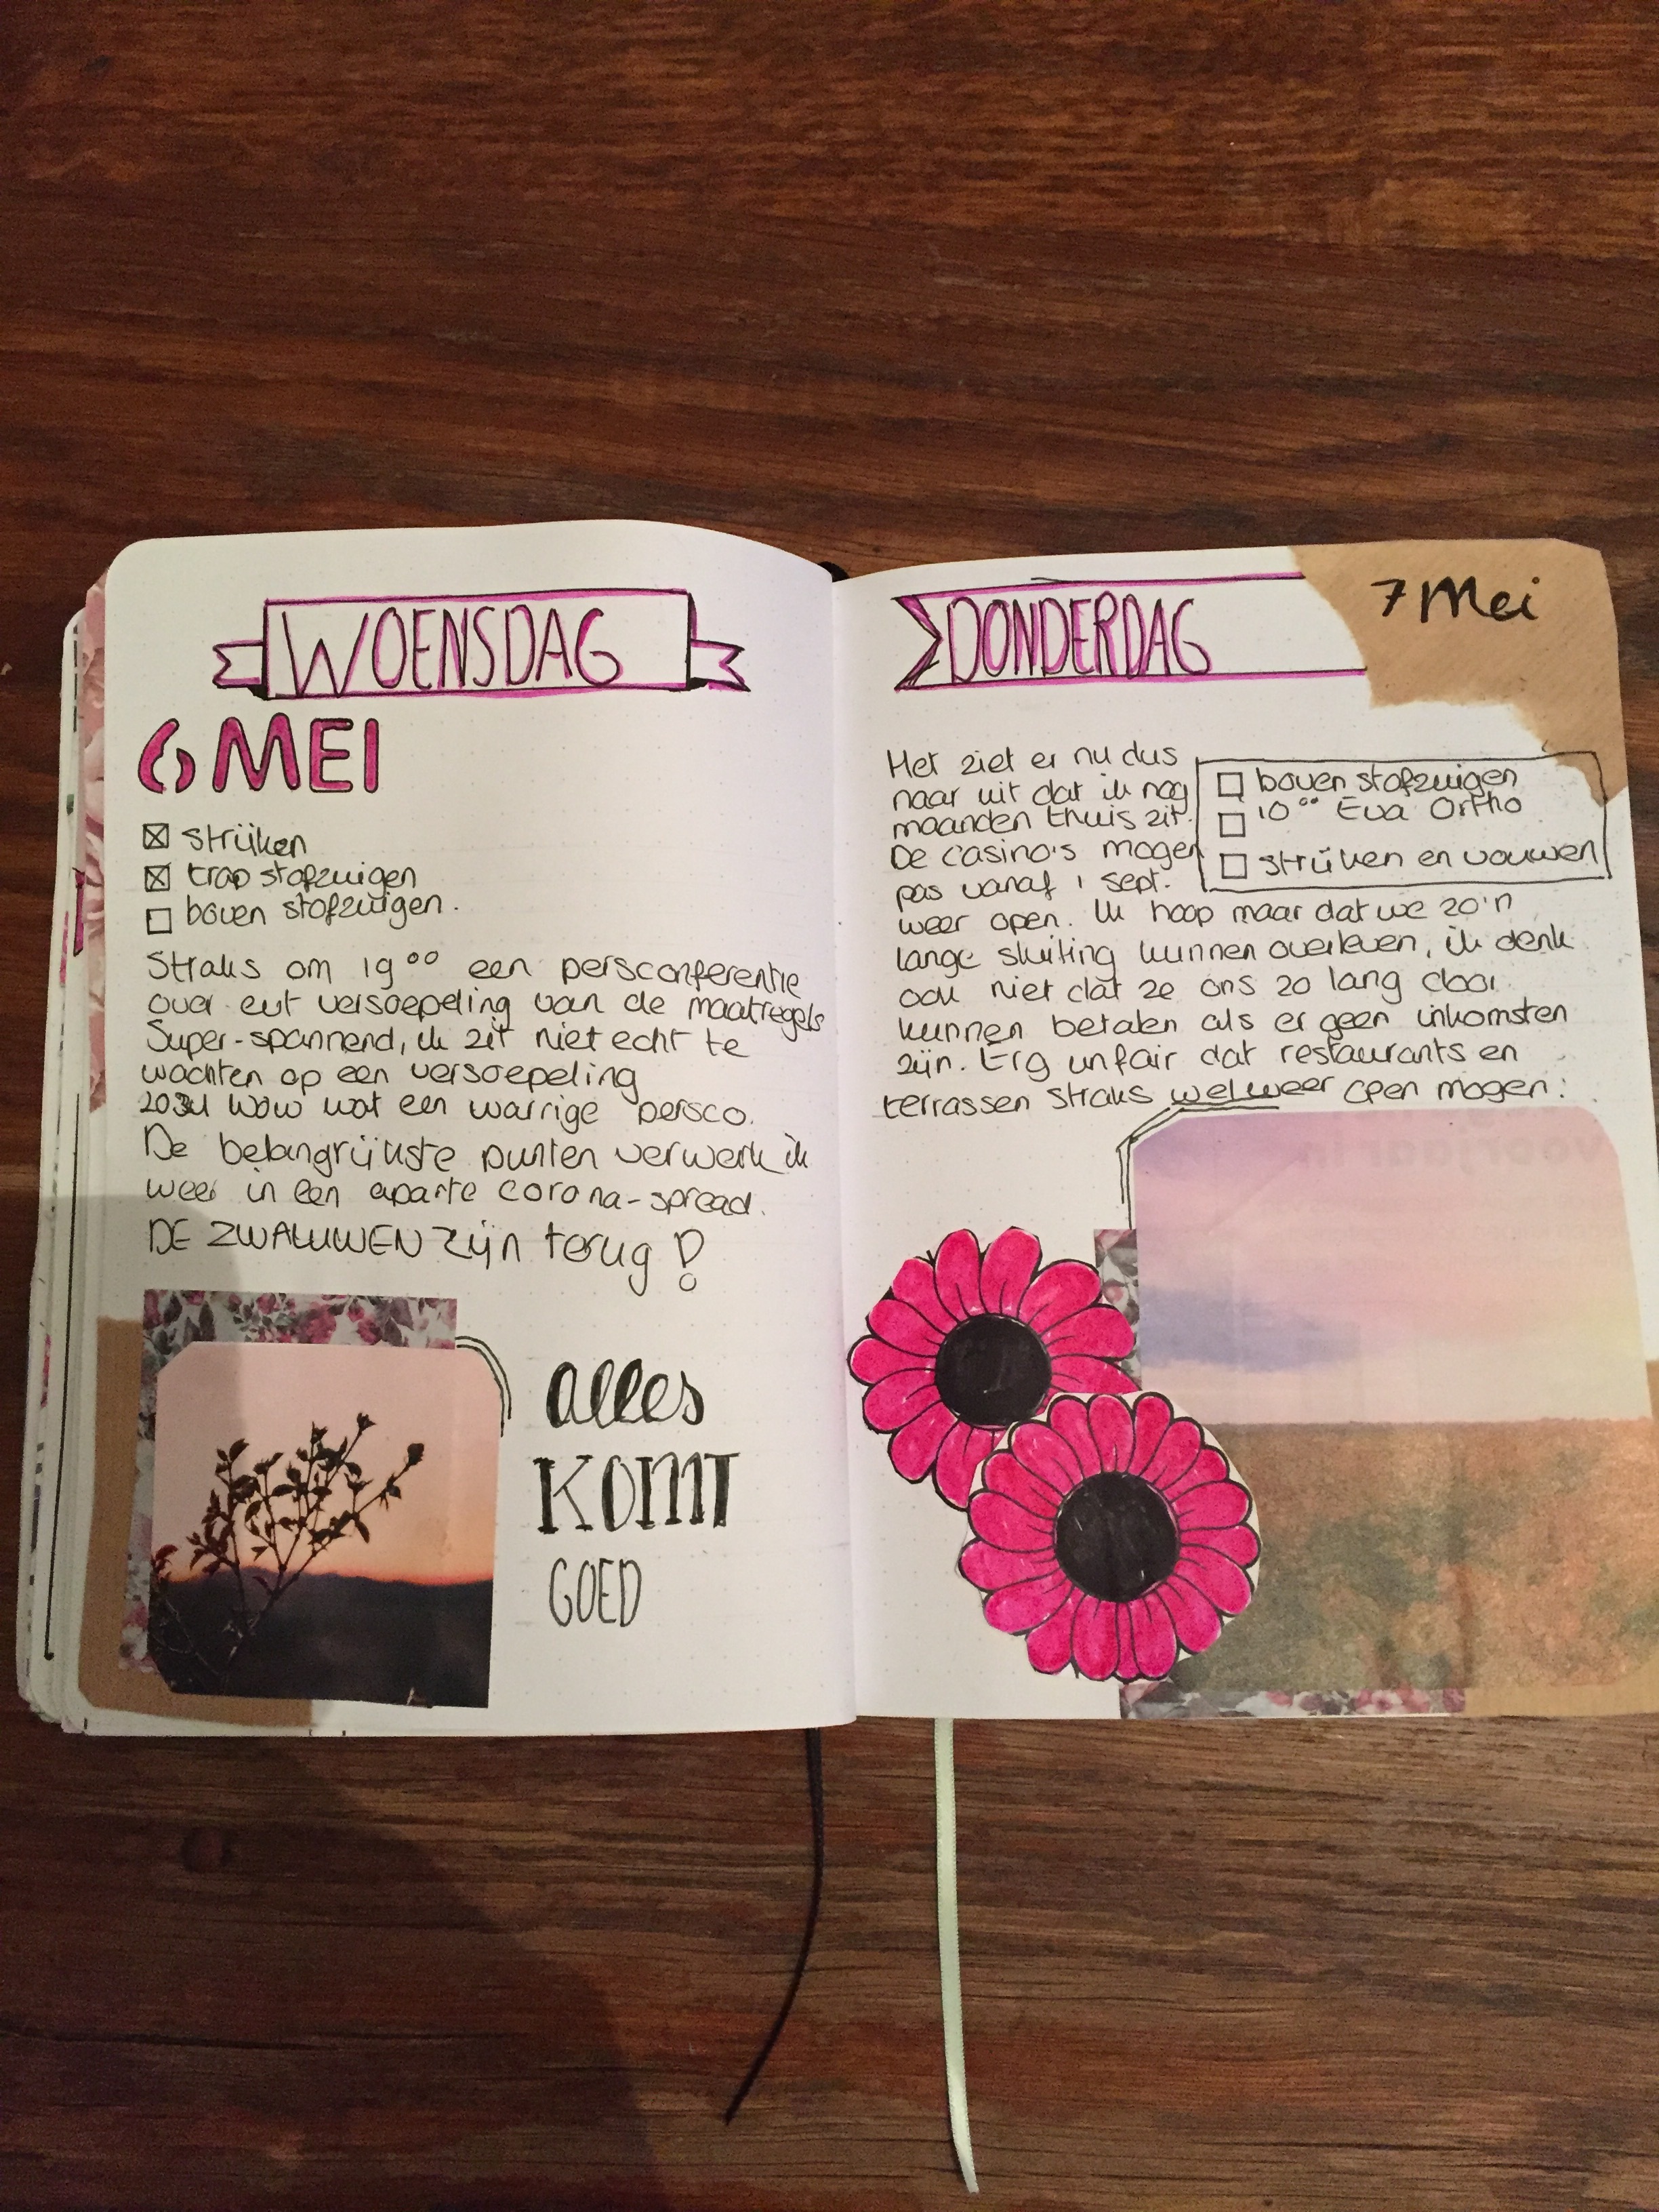 WOENSDAG
6 MEI
strijken
trap stofzuigen
boven stofzuigen.
Straks om 19°° een persconferentie
over evt versoepeling van de maatregels
Super-spannend, ik zit niet echt te
wachten op een versoepeling
wow wat een warrige persco.
De belangrijkste punten verwerk ik
weer in een aparte corona-spread.
DE ZWALUWEN zijn terug!
alles
KOMT
GOED
DONDERDAG
7 Mei
Het ziet er nu dus
naar uit dat ik nog
maanden thuis zit.
De casino's mogen
pas vanaf 1 sept.
weer open. Ik hoop maar dat we zo'n
lange sluiting kunnen overleven, ik denk
ook niet dat ze ons zo lang door
kunnen betalen als er geen inkomsten
zijn. Erg unfair dat restaurants en
terrassen straks wel weer open mogen!
boven stofzuigen
10°° Eva Ortho
strijken en vouwen